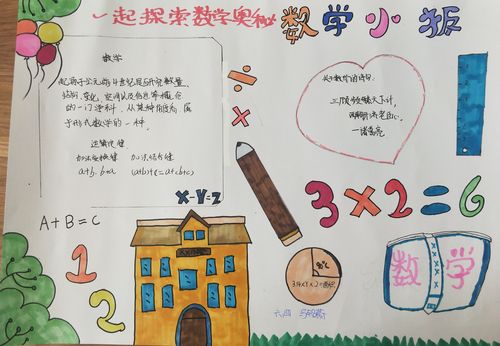 一起探索数学奥秘
数学小报
数学
起源于公元前4世纪是研究数量、
结构、变化、空间以及信息等概念
的一门学科,从某种角度看,属
于形式数学的一种。
运算定律
加法交换律 加法结合律
a+b=b+a (a+b)+c=a+(b+c)
关于数学的诗句
三顾频烦天下计,
两朝开济老臣心。
÷
×
X-Y=Z
A+B=C
3×2=6
1
2
数学
六四